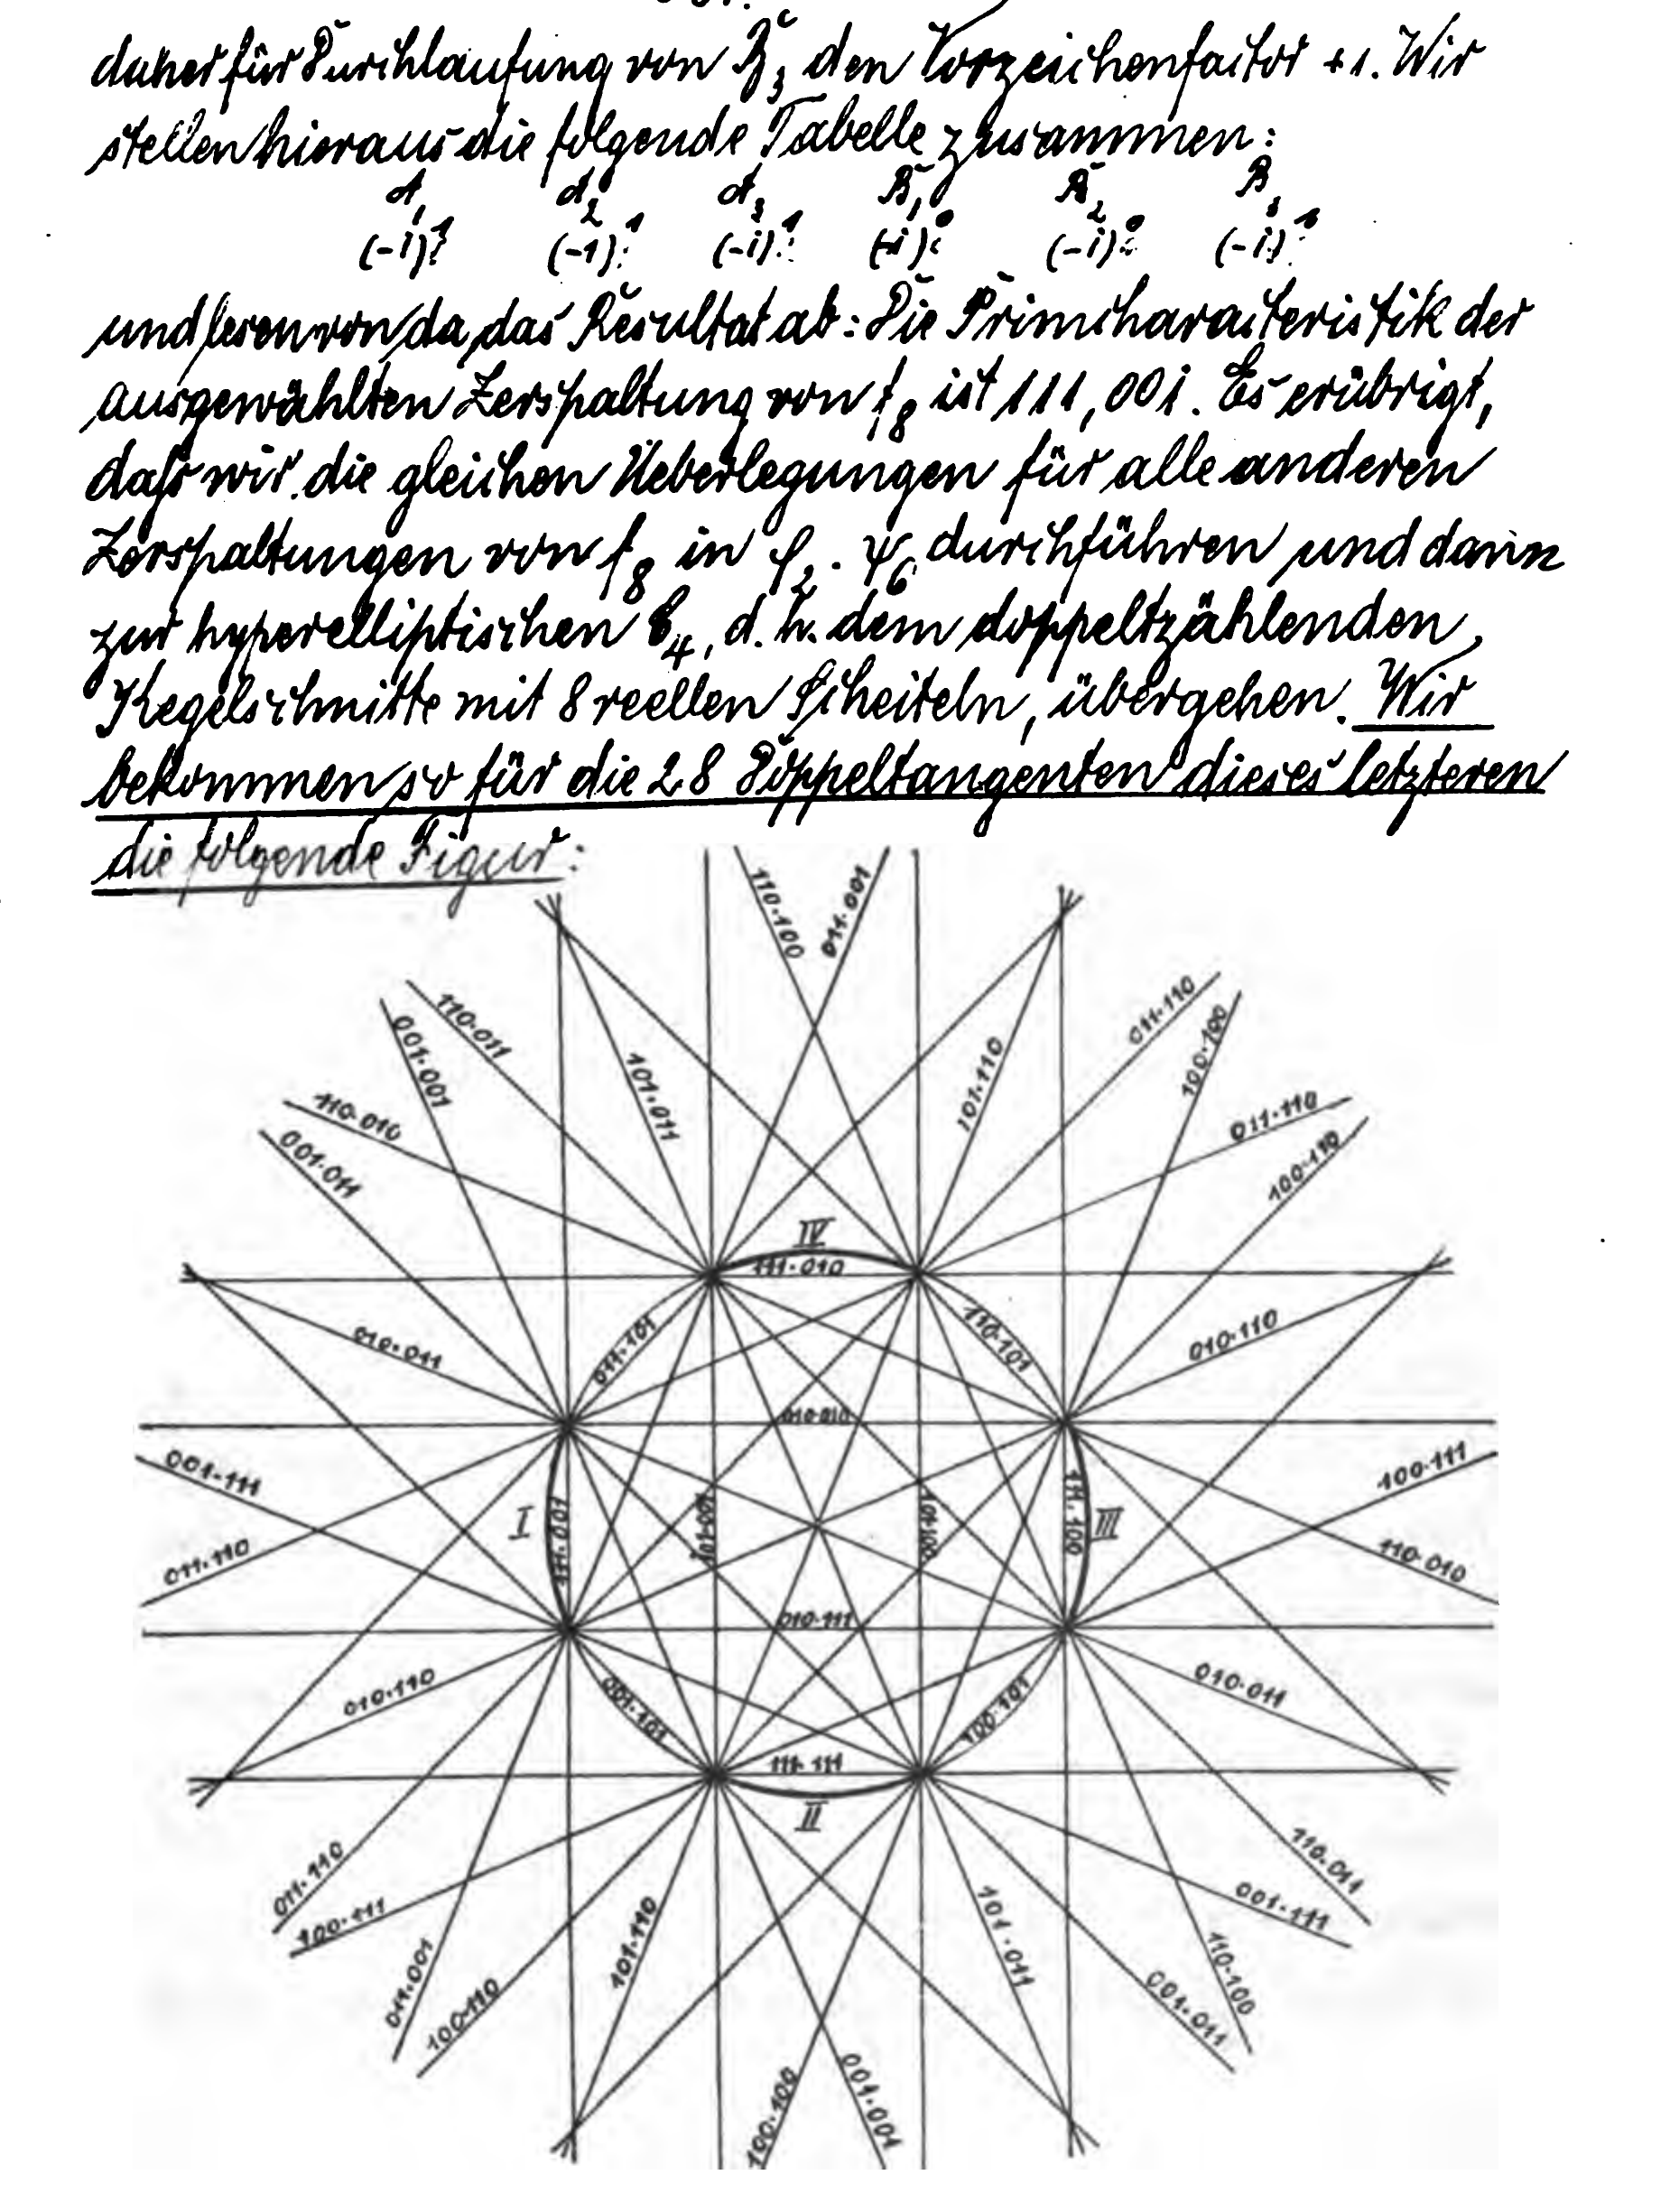 daher für Durchlaufung von B₃ den Vorzeichenfactor +1. Wir
stellen hieraus die folgende Tabelle zusammen:
A₁ A₂ A₃ B₁ B₂ B₃
(-1)¹ (-1)¹ (-1)¹ (-1)⁰ (-1)⁰ (-1)¹
und lesen von da das Resultat ab: Die Primcharacteristik der
ausgewählten Zerspaltung von f₈ ist 111,001. Es erübrigt,
daß wir die gleichen Ueberlegungen für alle anderen
Zerspaltungen von f₈ in φ₂. ψ₆ durchführen und dann
zur hyperelliptischen C₄, d.h. dem doppeltzählenden
Kegelschnitte mit 8 reellen Scheiteln, übergehen. Wir
bekommen so für die 28 Doppeltangenten dieses letzteren
die folgende Figur:
110·100 011·001
110·011 011·110
001·001 101·011 101·110 100·100
110·010 011·110
001·011 100·110
IV
111·010
010·011 011·101 110·101 010·110
010·010
001·111 100·111
I 111·001 101·001 101·100 111·100 III
011·110 110·010
010·111
010·110 001·101 100·101 010·011
111·111
II
011·110 110·011
100·111 001·111
101·110 101·011
011·001 110·100
100·110 001·011
100·100 001·001